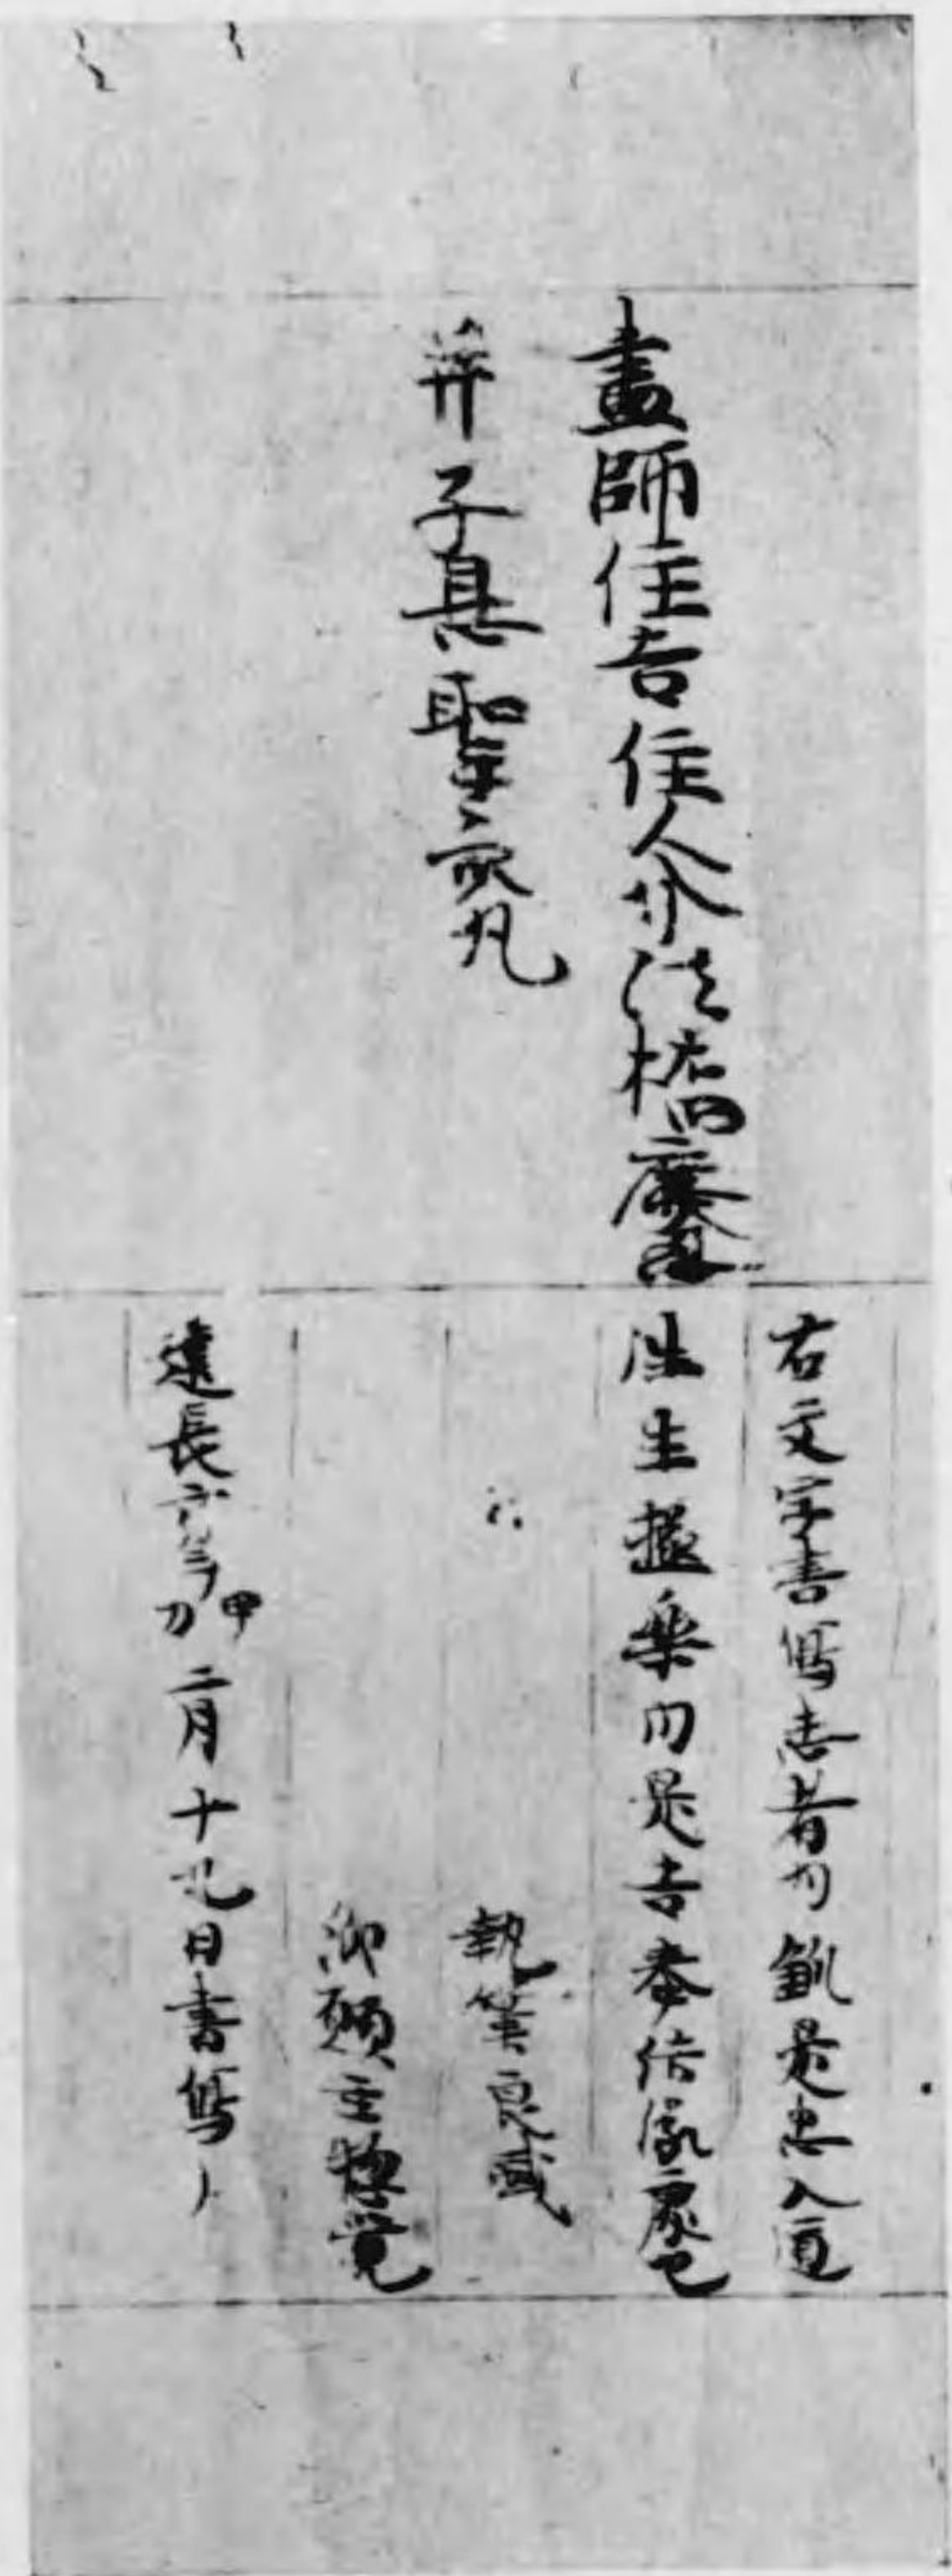 畫師住吉住人介法橋慶忍
并子息聖衆丸
右文字書写志者為釼是忠入道
往生極楽内是吉奉結縁處也
執筆良盛
御願主惣覚
建長六年甲刀二月十九日書写了